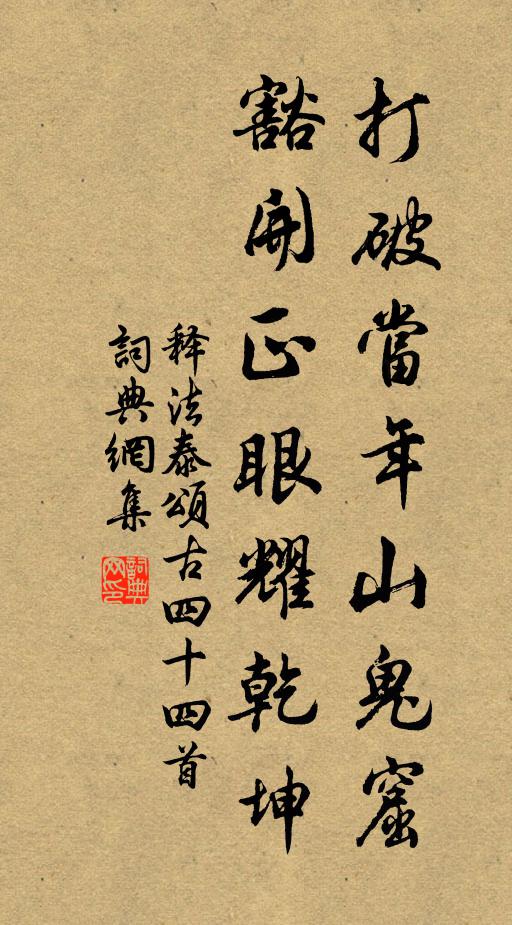 打破當年山鬼窟
豁開正眼耀乾坤
释法泰頌古四十四首
詞典網集
詞典网印